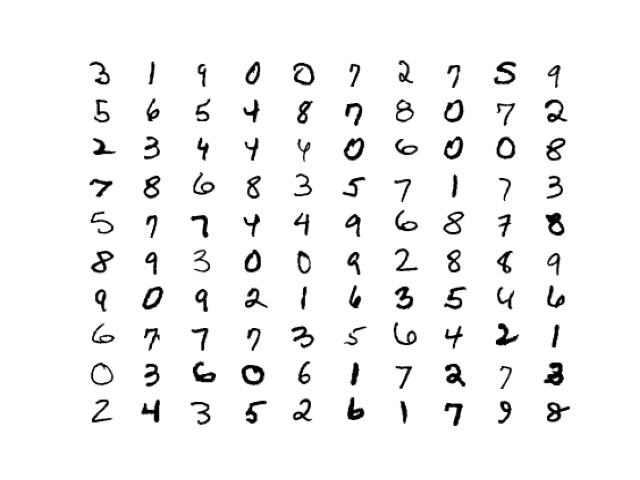 3 1 9 0 0 7 2 7 5 9
5 6 5 4 8 7 8 0 7 2
2 3 4 4 4 0 6 0 0 8
7 8 6 8 3 5 7 1 7 3
5 7 7 4 4 9 6 8 7 8
8 9 3 0 0 9 2 8 8 9
9 0 9 2 1 6 3 5 4 6
6 7 7 7 3 5 6 4 2 1
0 3 6 0 6 1 7 2 7 3
2 4 3 5 2 6 1 7 9 8